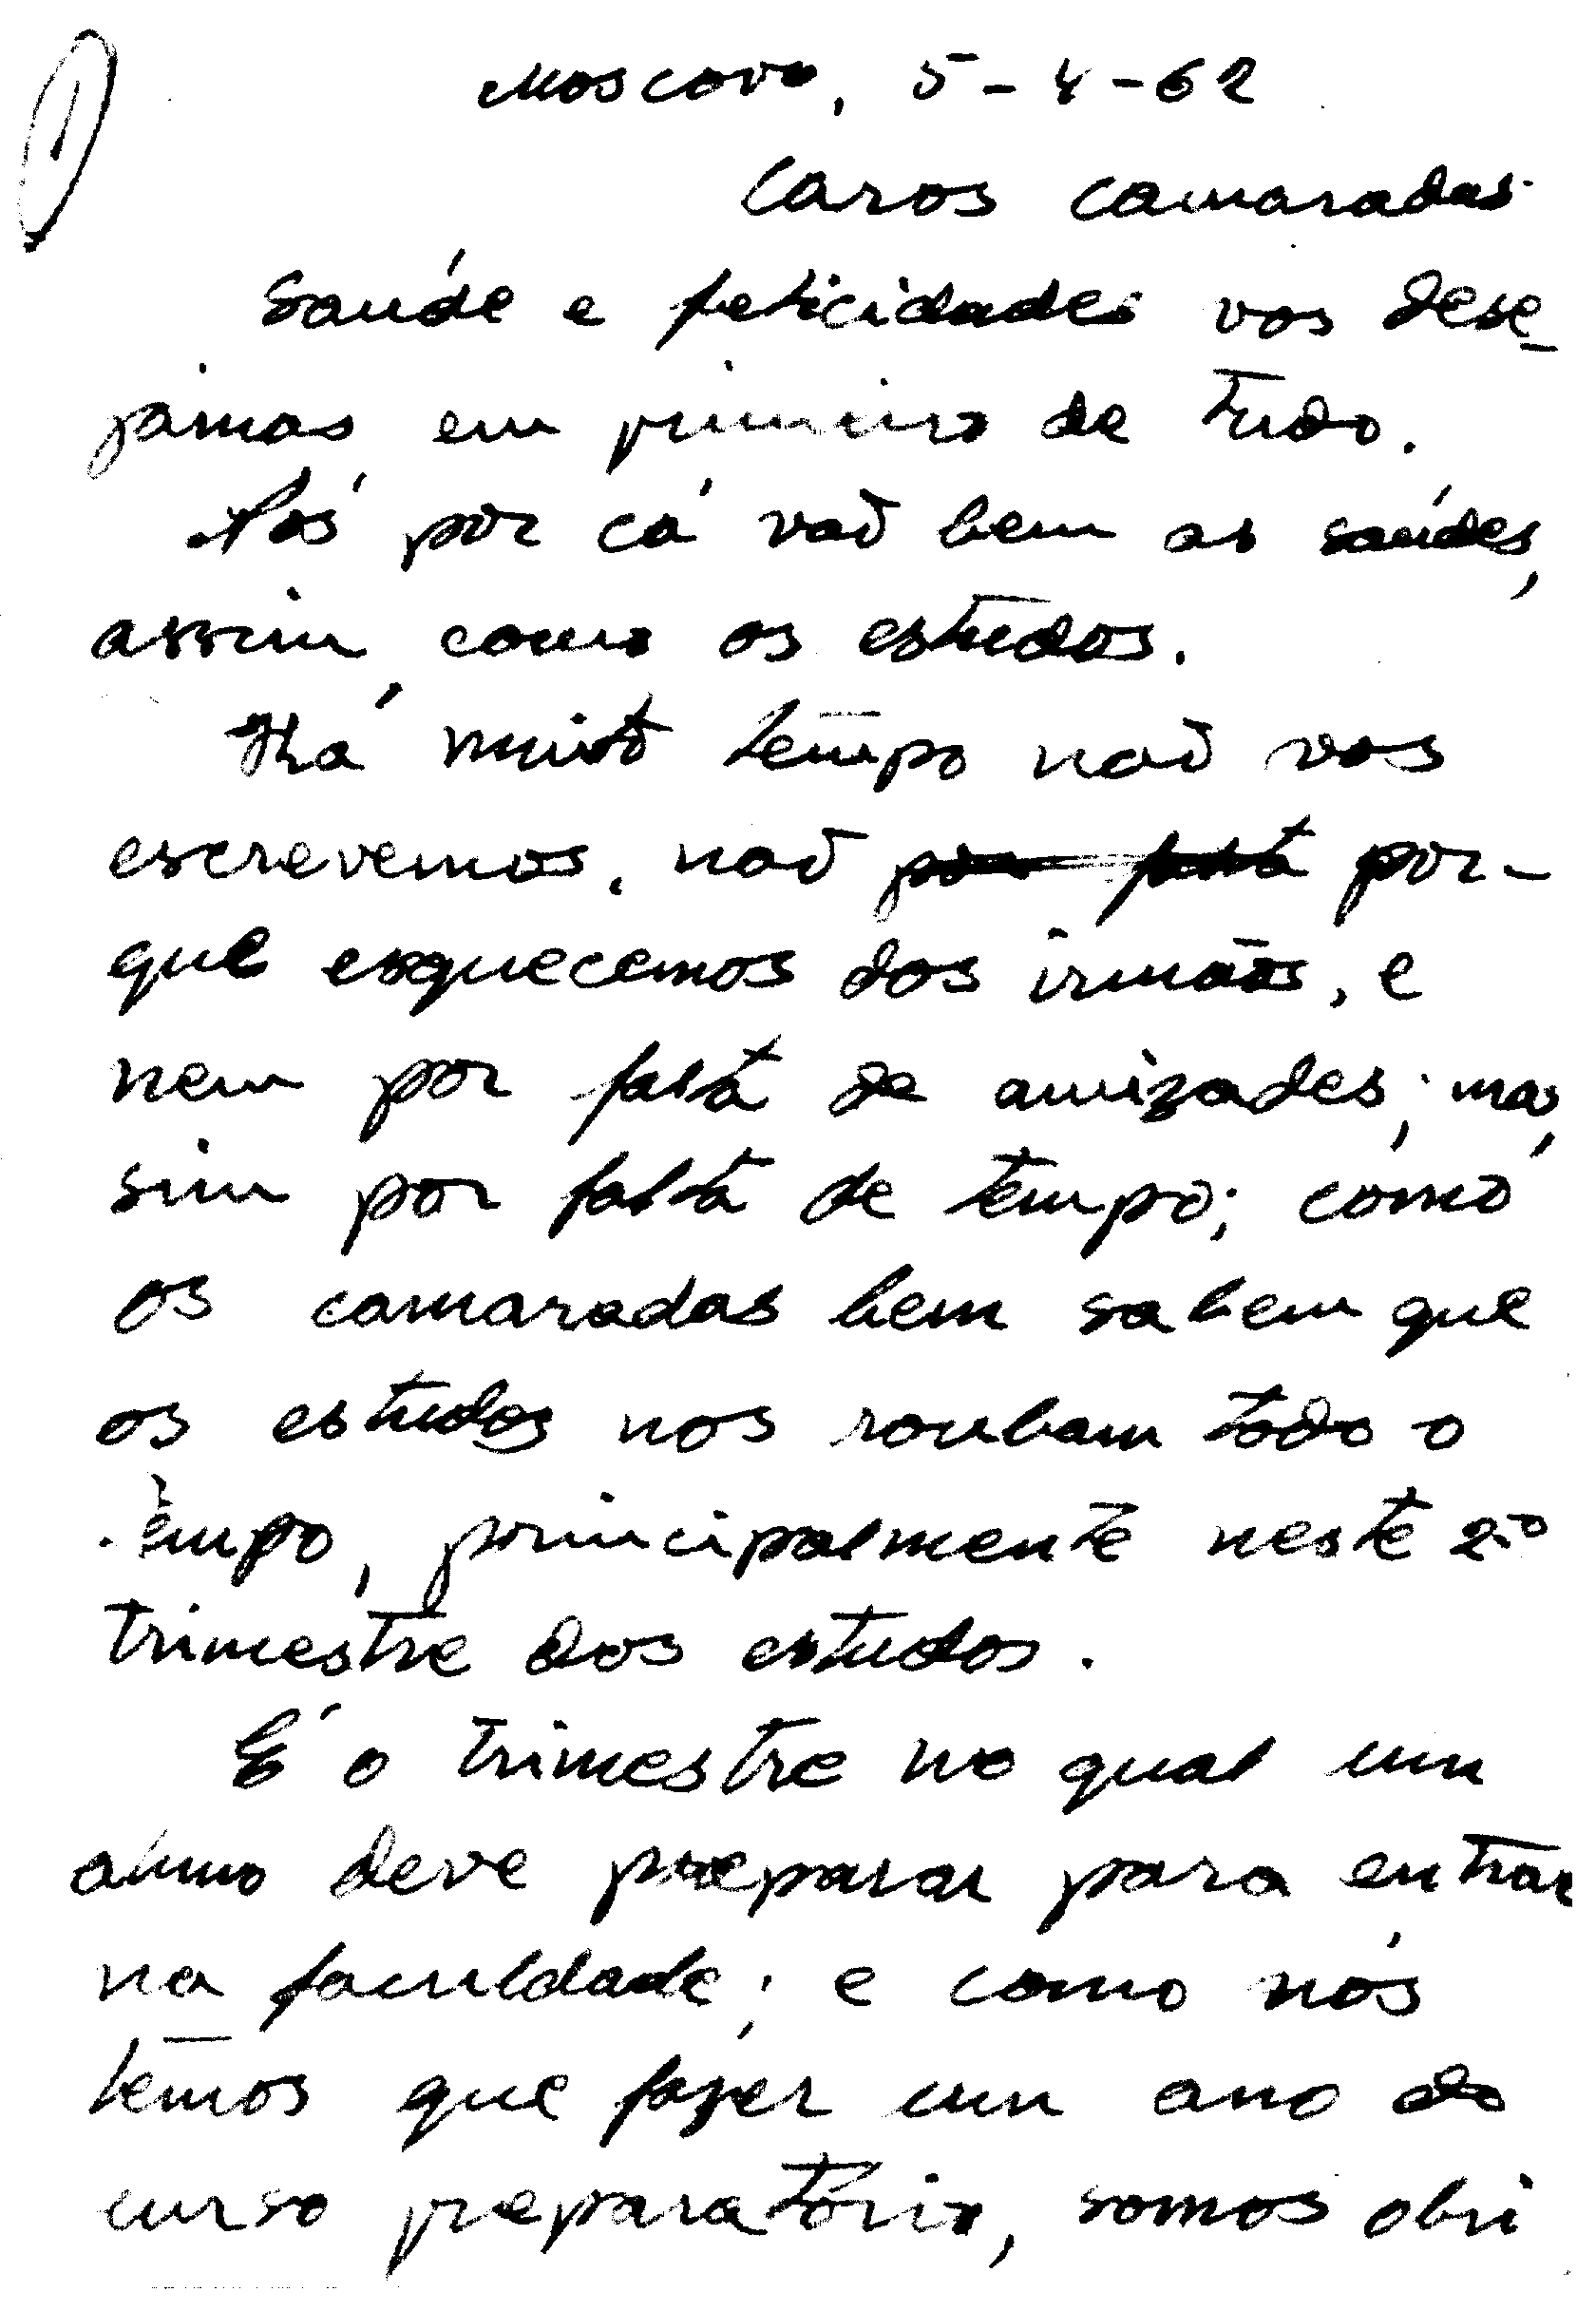 1
Moscovo, 5-4-62
Caros camaradas
Saúde e felicidades vos dese-
jamos em primeiro de tudo.
Nós por cá vaõ bem as saúdes,
assim como os estudos.
Há muito tempo naõ vos
escrevemos, naõ por falta por-
que esquecemos dos irmãos, e
nem por falta de amizades; mas
sim por falta de tempo; como
os camaradas bem sabem que
os estudos nos roubam todo o
tempo, principalmente neste 2.º
trimestre dos estudos.
É o trimestre no qual um
aluno deve preparar para entrar
na faculdade; e como nós
temos que fazer um ano do
curso preparatório, somos obri